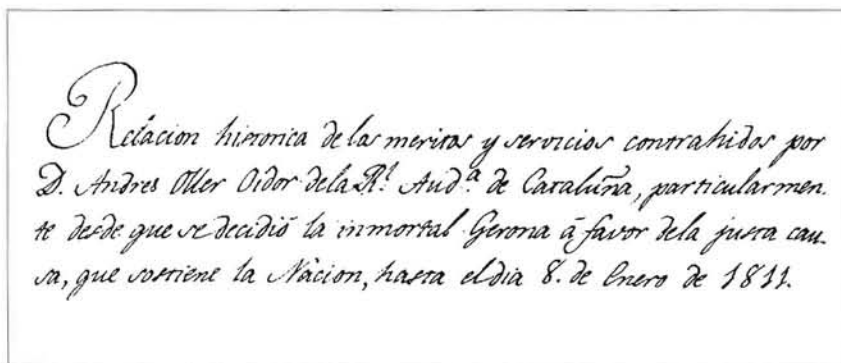 Relacion historica de los meritos y servicios contrahidos por
D. Andres Oller Oidor de la Rl. Auda. de Cataluña, particularmen-
te desde que se decidió la inmortal Gerona á favor dela justa cau-
sa, que sostiene la Nácion, hasta el dia 8. de Enero de 1811.